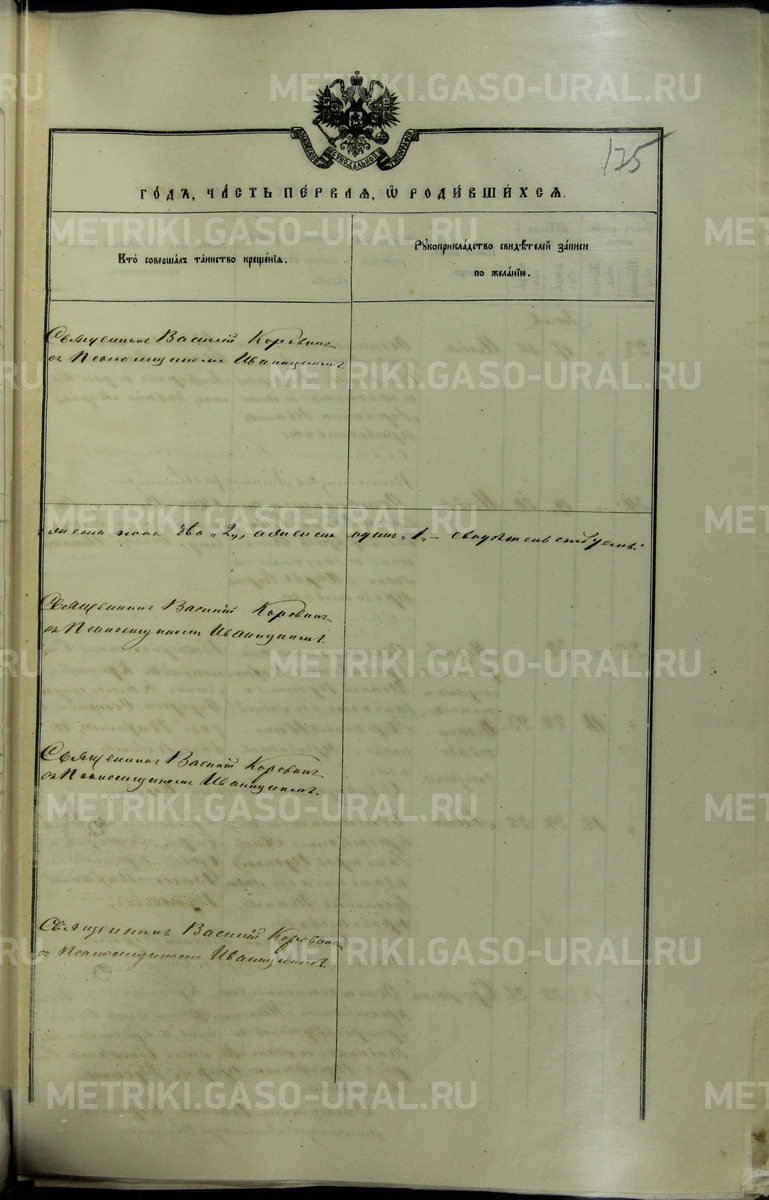 METRIKI.GASO-URAL.RU
МОСКОВСКОЙ СѴНОДАЛЬНОЙ ТИПОГРАФІИ
175
ГО́ДЪ, ЧА́СТЬ ПЕ́РВАЯ, Ѡ РОДИ́ВШИ́ХСЯ.
Кто̀ соверша́лъ та́инство креще́нїѧ.
Рꙋкоприкла́дство свидѣ́телей за́писи
по жела́нїю.
Священникъ Василій Коровинъ
съ Псаломщикомъ Иваницкимъ
пола два „2„, женска одинъ „1„ — свидѣтельствуемъ:
Священникъ Василій Коровинъ
съ Псаломщикомъ Иваницкимъ.
Священникъ Василій Коровинъ
съ Псаломщикомъ Иваницкимъ.
Священникъ Василій Коровинъ
съ Псаломщикомъ Иваницкимъ.